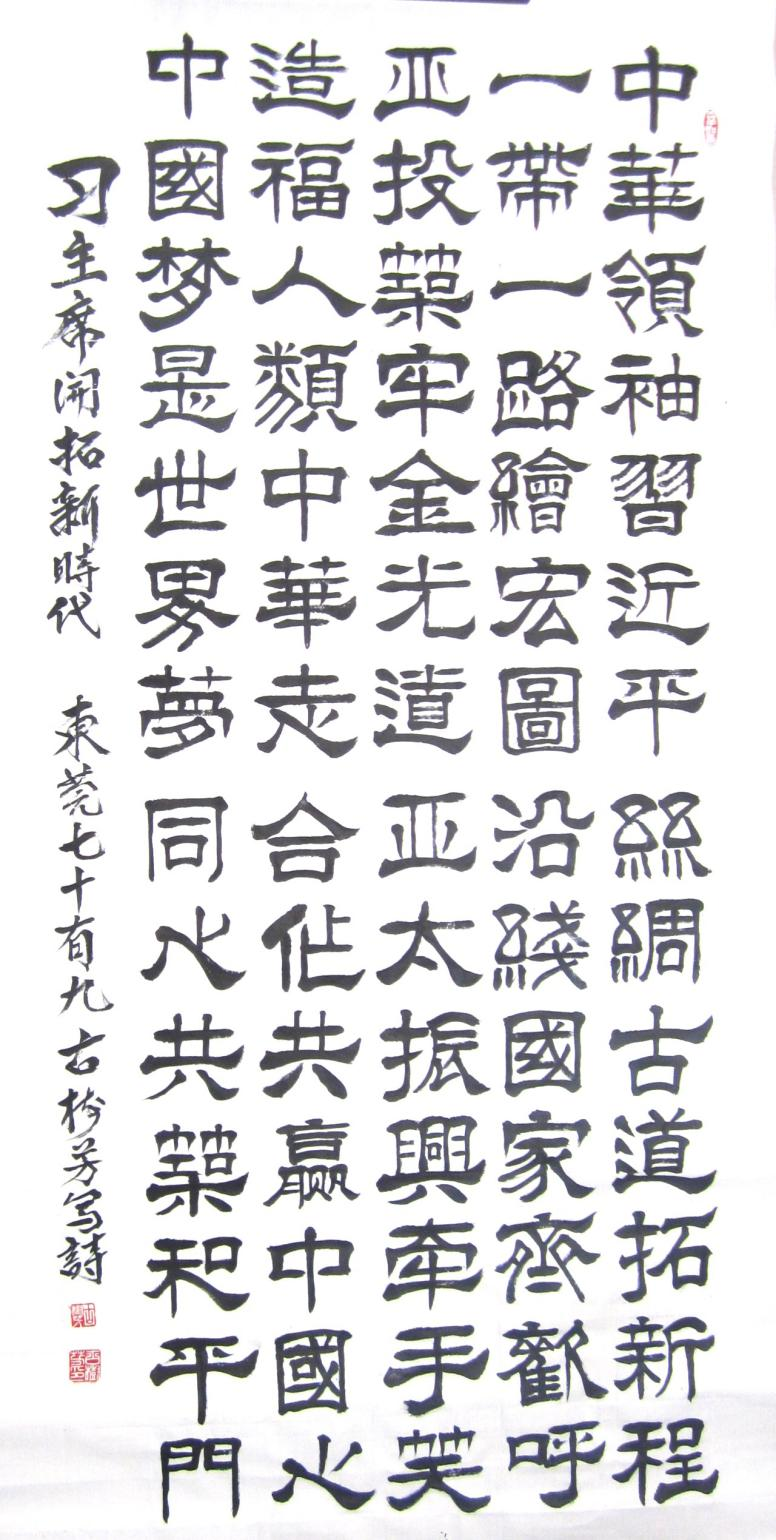 中華領袖習近平絲綢古道拓新程
一帶一路繪宏圖沿綫國家齊歡呼
亚投築牢金光道亚太振興牽手笑
造福人類中華走合作共赢中國心
中國梦是世界夢同心共築和平門
习主席開拓新時代 東莞七十有九古樹芳写詩